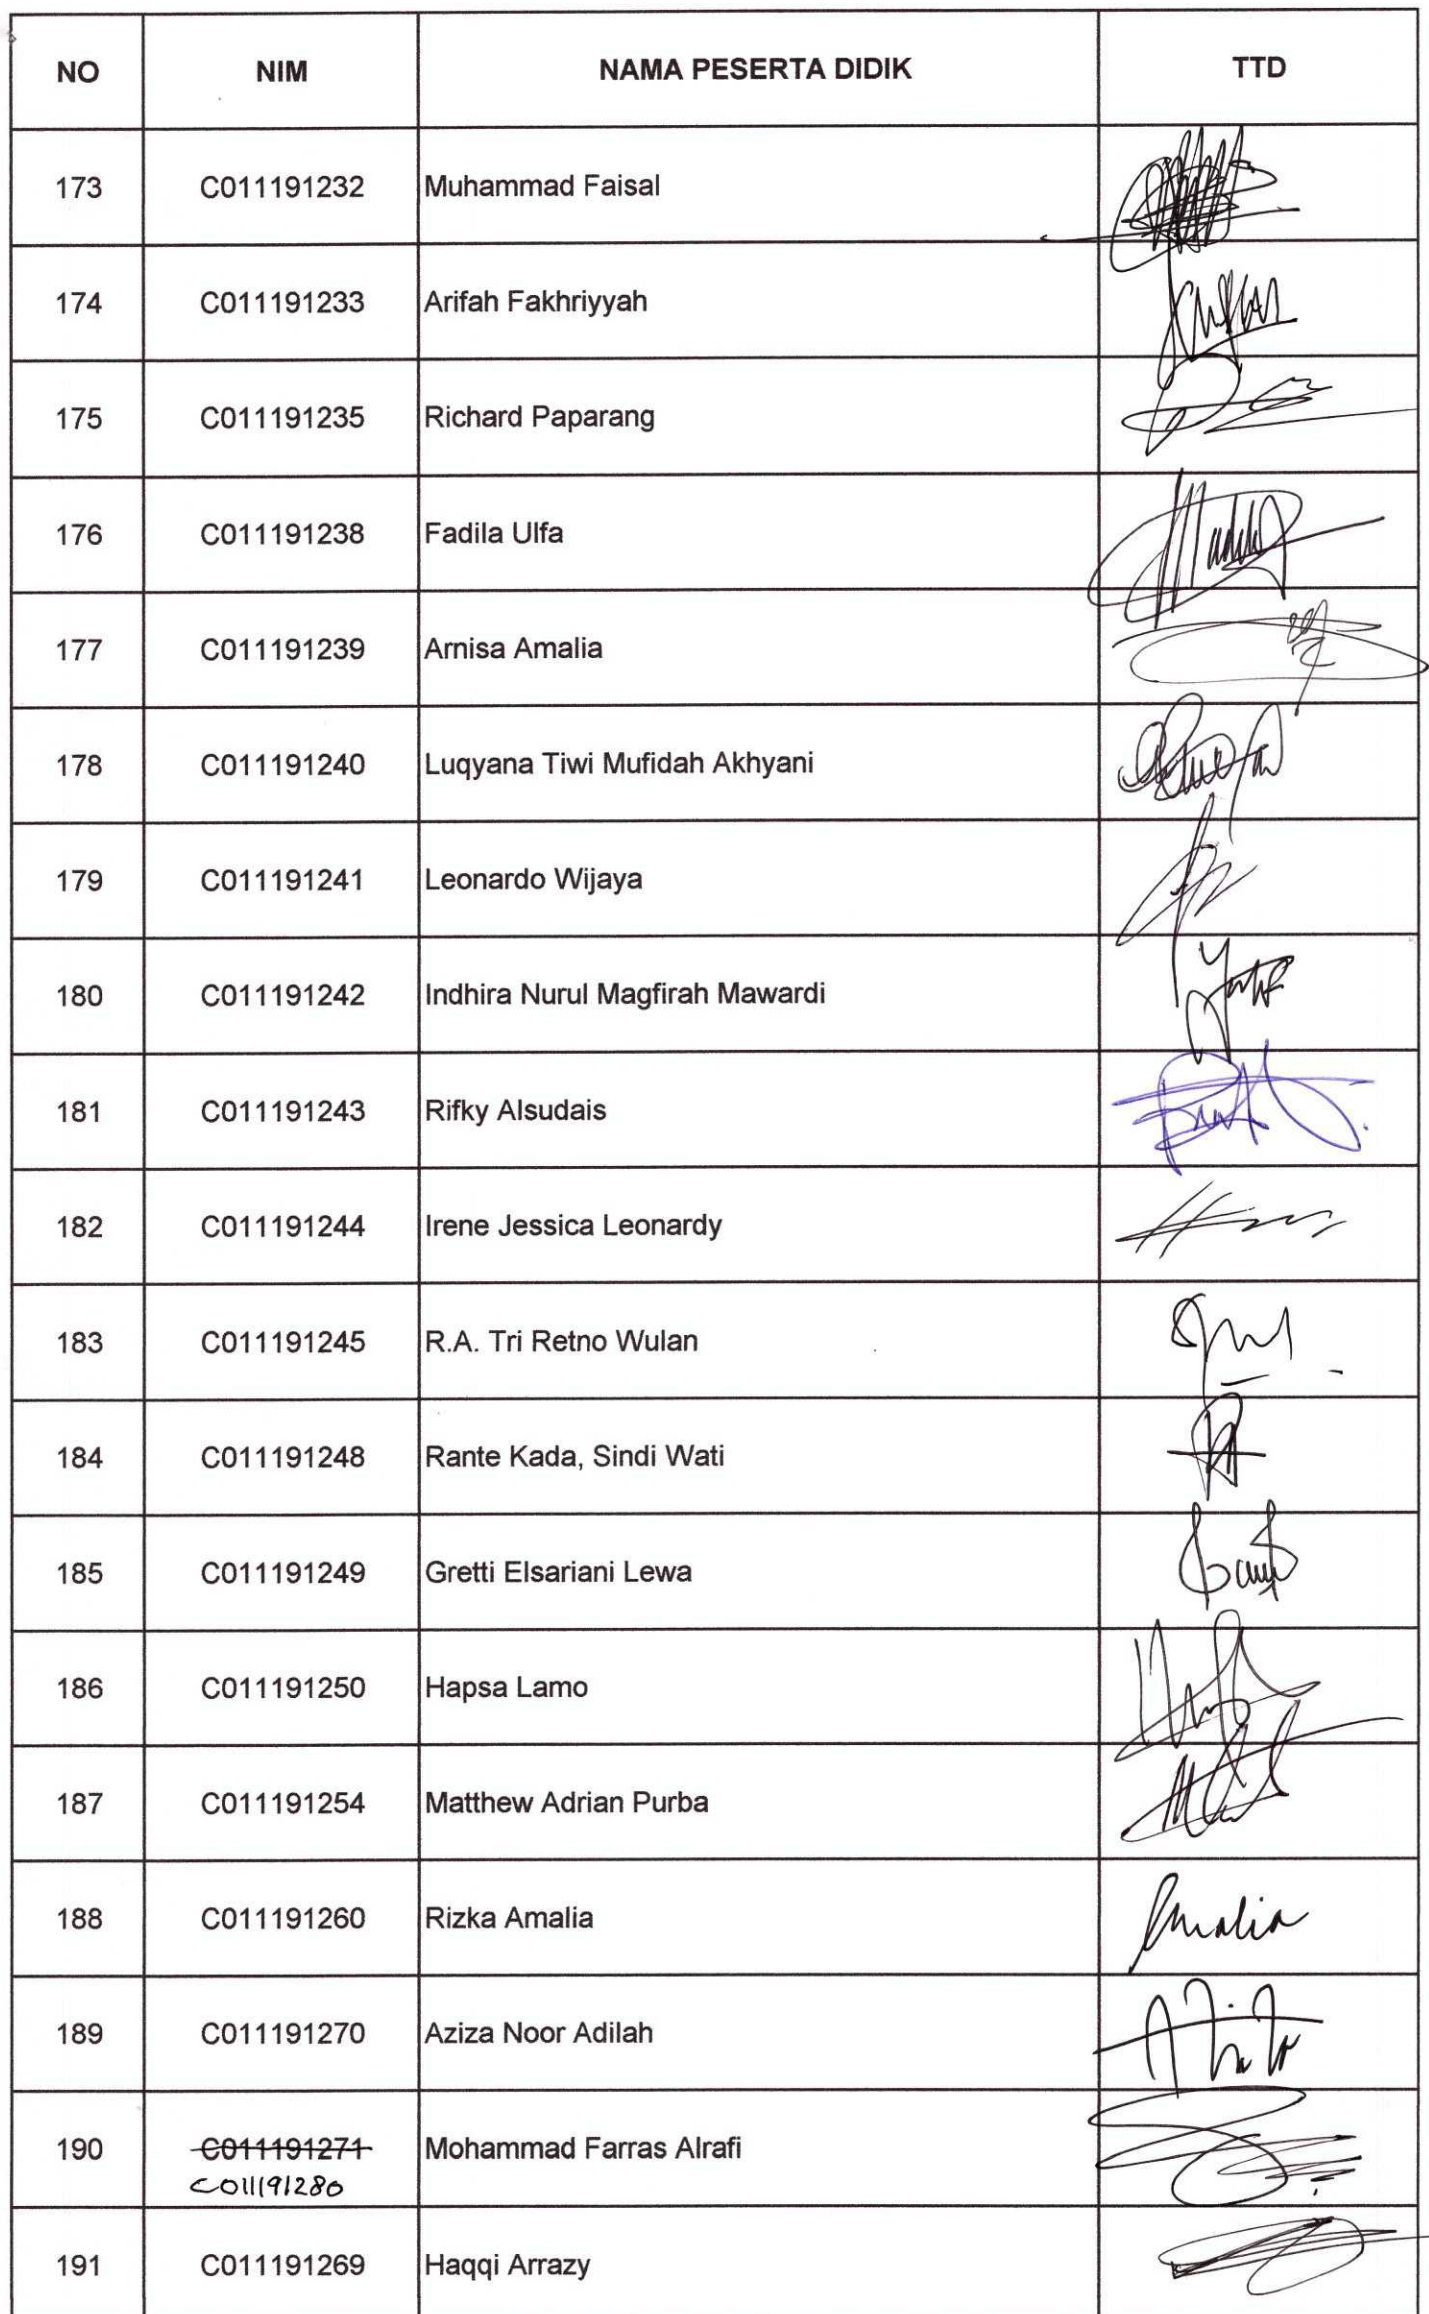 NO NIM NAMA PESERTA DIDIK TTD
173 C011191232 Muhammad Faisal
174 C011191233 Arifah Fakhriyyah
175 C011191235 Richard Paparang
176 C011191238 Fadila Ulfa
177 C011191239 Arnisa Amalia
178 C011191240 Luqyana Tiwi Mufidah Akhyani
179 C011191241 Leonardo Wijaya
180 C011191242 Indhira Nurul Magfirah Mawardi
181 C011191243 Rifky Alsudais
182 C011191244 Irene Jessica Leonardy
183 C011191245 R.A. Tri Retno Wulan
184 C011191248 Rante Kada, Sindi Wati
185 C011191249 Gretti Elsariani Lewa
186 C011191250 Hapsa Lamo
187 C011191254 Matthew Adrian Purba
188 C011191260 Rizka Amalia Amalia
189 C011191270 Aziza Noor Adilah
190 C011191271 Mohammad Farras Alrafi
C011191280
191 C011191269 Haqqi Arrazy